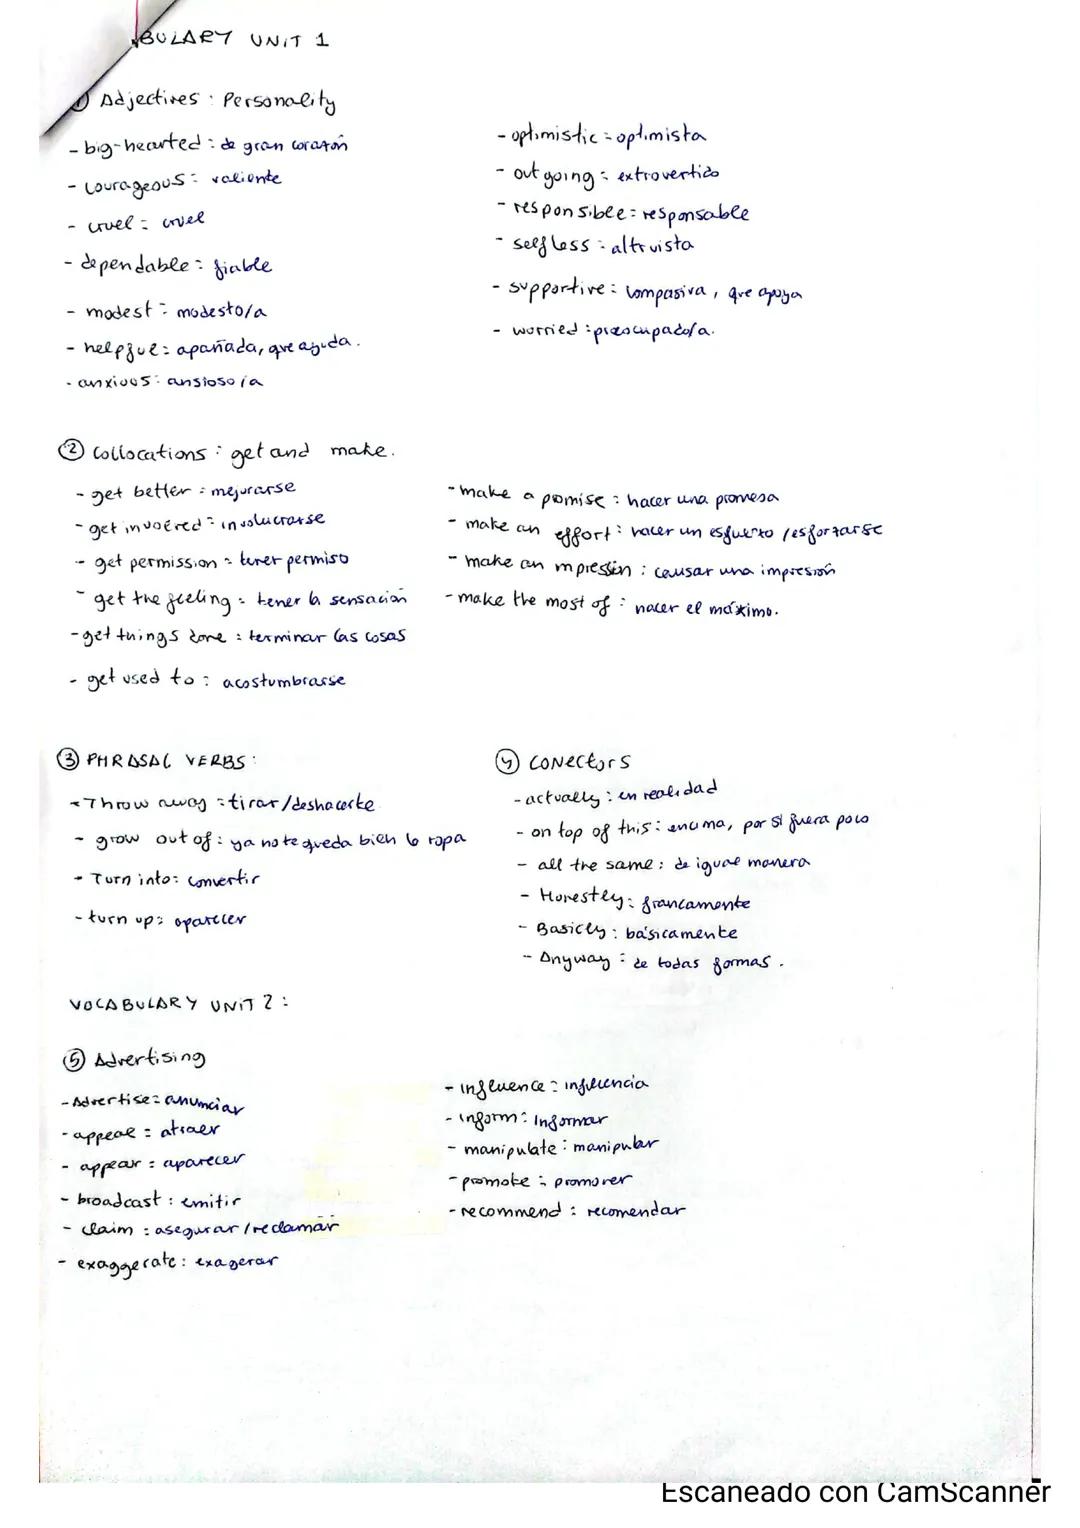 BULARY UNIT 1
① Adjectives: Personality
- big-hearted: de gran corazón
- courageous: valiente
- cruel: cruel
- dependable: fiable
- modest: modesto/a
- helpful: apañada, que ayuda.
- anxious: ansioso/a
- optimistic: optimista
- outgoing: extrovertido
- responsible: responsable
- selfless: altruista
- supportive: compasiva, que apoya
- worried: preocupado/a.
② Collocations: get and make.
- get better: mejorarse
- get involved: involucrarse
- get permission: tener permiso
- get the feeling: tener la sensación
- get things done: terminar las cosas
- get used to: acostumbrarse
- make a promise: hacer una promesa
- make an effort: hacer un esfuerzo / esforzarse
- make an mpressin: causar una impresión
- make the most of: hacer el máximo.
③ PHRASAL VERBS:
- Throw away: tirar/deshacerte
- grow out of: ya no te queda bien la ropa
- Turn into: convertir
- turn up: aparecer
④ Conectors
- actually: en realidad
- on top of this: encima, por si fuera poco
- all the same: de igual manera
- Honestly: francamente
- Basicly: básicamente
- Anyway: de todas formas.
VOCABULARY UNIT 2:
⑤ Advertising
- Advertise: anunciar
- appeal: atraer
- appear: aparecer
- broadcast: emitir
- claim: asegurar/reclamar
- exaggerate: exagerar
- influence: influencia
- inform: informar
- manipulate: manipular
- promote: promover
- recommend: recomendar
Escaneado con CamScanner